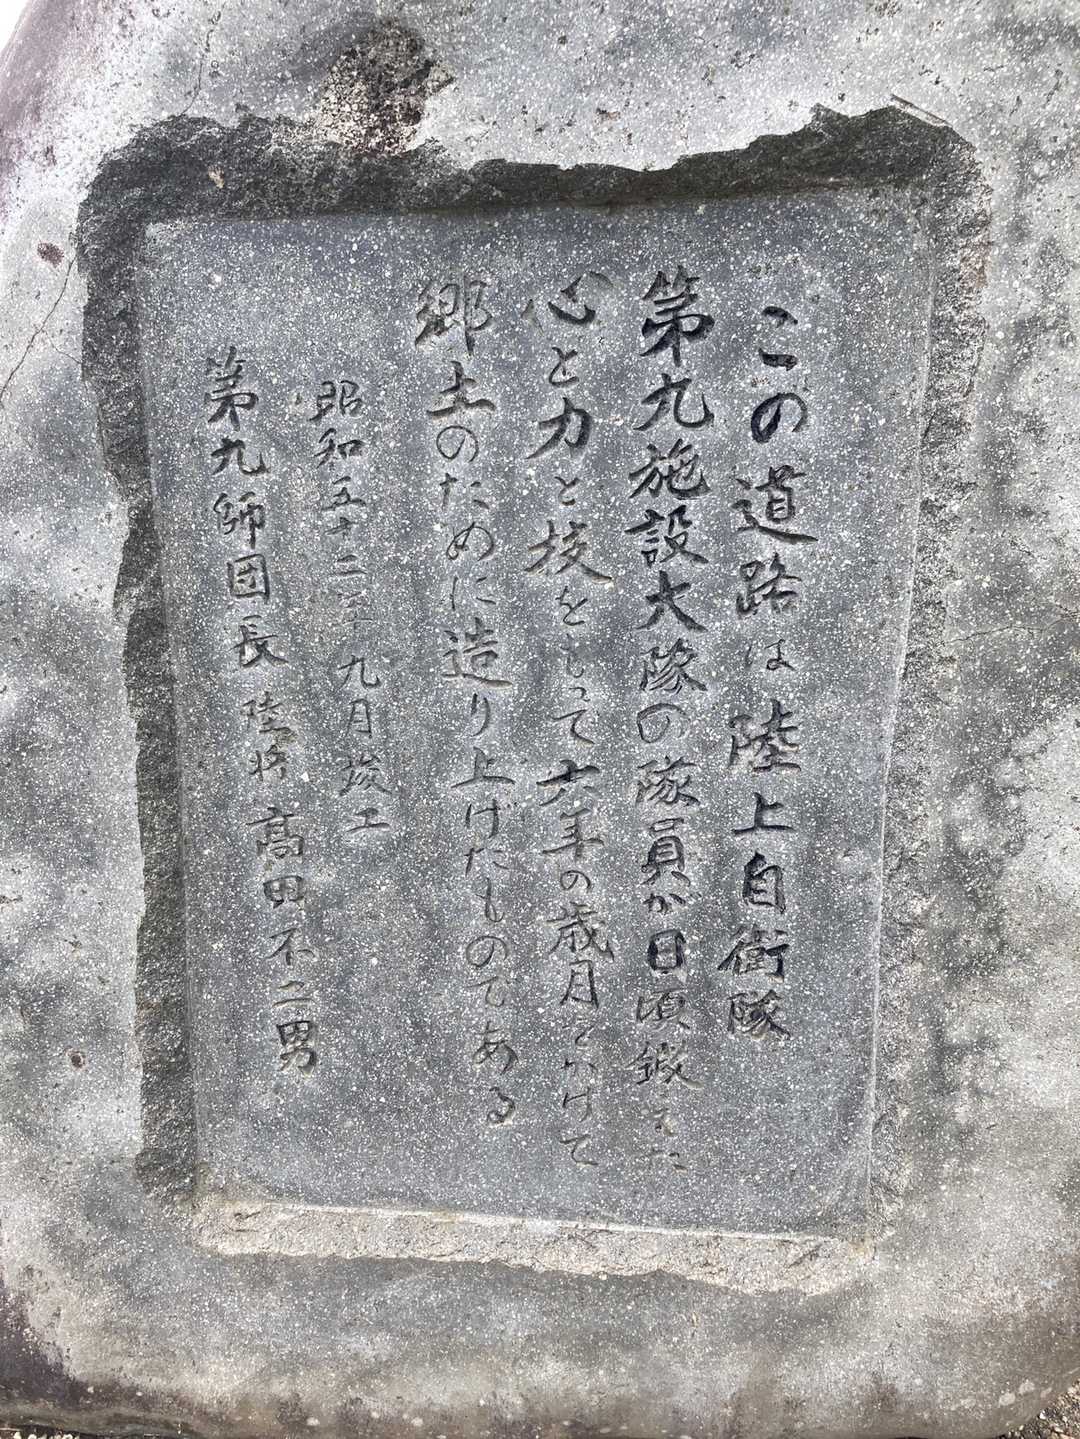 この道路は陸上自衛隊
第九施設大隊の隊員が日頃鍛えた
心と力と技をもって六年の歳月をかけて
郷土のために造り上げたものである
昭和五十二年九月竣工
第九師団長 陸将 高田不二男